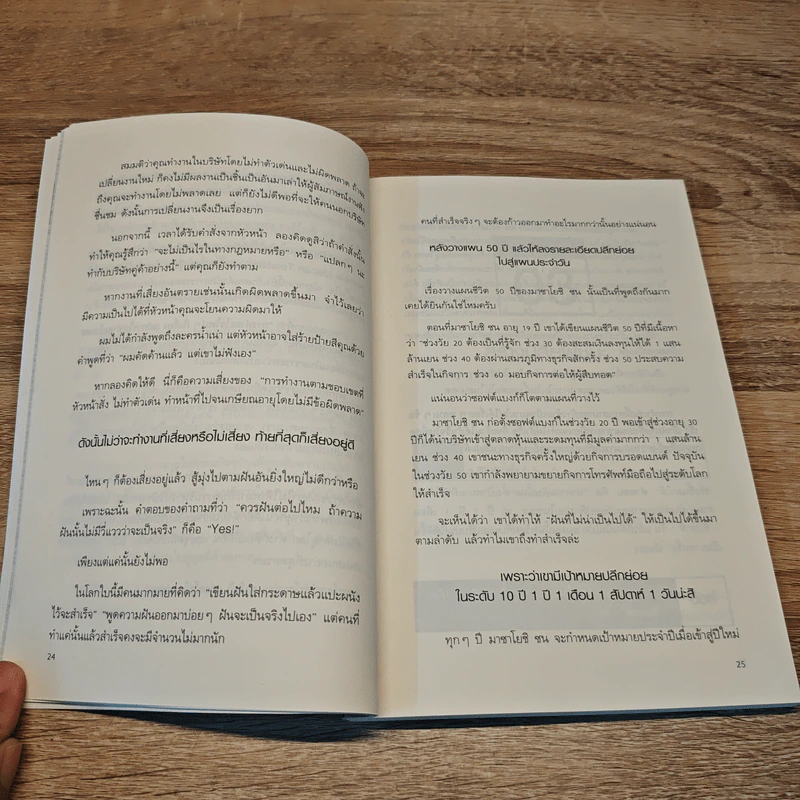 สมมติว่าคุณทำงานในบริษัทโดยไม่ทำตัวเด่นและไม่ผิดพลาด ถ้าจะ
เปลี่ยนงานใหม่ ก็คงไม่มีผลงานเป็นชิ้นเป็นอันมาเล่าให้ผู้สัมภาษณ์งานฟัง
ถึงคุณจะทำงานโดยไม่พลาดเลย แต่ก็ยังไม่ดีพอที่จะให้คนนอกบริษัท
ชื่นชม ดังนั้นการเปลี่ยนงานจึงเป็นเรื่องยาก
นอกจากนี้ เวลาได้รับคำสั่งจากหัวหน้า ลองคิดดูสิว่าถ้าคำสั่งนั้น
ทำให้คุณรู้สึกว่า "จะเป็นไรในทางกฎหมายหรือ" หรือ "แปลกๆ นะ
ทำกับบริษัทคู่ค้าอย่างนี้" แต่คุณก็ยังทำตาม
หากงานที่เสี่ยงอันตรายเช่นนั้นเกิดผิดพลาดขึ้นมา จำไว้เลยว่า
มีความเป็นไปได้ที่หัวหน้าคุณจะโยนความผิดมาให้
ผมไม่ได้กำลังพูดถึงละครน้ำเน่า แต่หัวหน้าอาจใส่ร้ายป้ายสีคุณด้วย
คำพูดที่ว่า "ผมคัดค้านแล้ว แต่เขาไม่ฟังเอง"
หากลองคิดให้ดี นี่ก็คือความเสี่ยงของ "การทำงานตามขอบเขตที่
หัวหน้าสั่ง ไม่ทำตัวเด่น ทำหน้าที่ไปจนเกษียณอายุโดยไม่มีข้อผิดพลาด"
ดังนั้นไม่ว่าจะทำงานที่เสี่ยงหรือไม่เสี่ยง ท้ายที่สุดก็เสี่ยงอยู่ดี
ไหนๆ ก็ต้องเสี่ยงอยู่แล้ว สู้มุ่งไปตามฝันอันยิ่งใหญ่ไม่ดีกว่าหรือ
เพราะฉะนั้น คำตอบของคำถามที่ว่า "ควรฝันต่อไปไหม ถ้าความ
ฝันนั้นไม่มีวี่แววว่าจะเป็นจริง" ก็คือ "Yes!"
เพียงแต่แค่นั้นยังไม่พอ
ในโลกใบนี้มีคนมากมายที่คิดว่า "เขียนฝันใส่กระดาษแล้วแปะผนัง
ไว้จะสำเร็จ" "พูดความฝันออกมาบ่อยๆ ฝันจะเป็นจริงไปเอง" แต่คนที่
ทำแค่นั้นแล้วสำเร็จคงจะมีจำนวนไม่มากนัก
24
คนที่สำเร็จจริงๆ จะต้องก้าวออกมาทำอะไรมากกว่านั้นอย่างแน่นอน
หลังวางแผน 50 ปี แล้วให้ลงรายละเอียดปลีกย่อย
ไปสู่แผนประจำวัน
เรื่องวางแผนชีวิต 50 ปีของมาซาโยชิ ซน นั้นเป็นที่พูดถึงกันมาก
เคยได้ยินกันใช่ไหมครับ
ตอนที่มาซาโยชิ ซน อายุ 19 ปี เขาได้เขียนแผนชีวิต 50 ปีที่มีเนื้อหา
ว่า "ช่วงวัย 20 ต้องเป็นที่รู้จัก ช่วง 30 ต้องสะสมเงินลงทุนให้ได้ 1 แสน
ล้านเยน ช่วง 40 ต้องผ่านสมรภูมิทางธุรกิจสักครั้ง ช่วง 50 ประสบความ
สำเร็จในกิจการ ช่วง 60 มอบกิจการต่อให้ผู้สืบทอด"
แน่นอนว่าซอฟต์แบงก์ก็โตตามแผนที่วางไว้
มาซาโยชิ ซน ก่อตั้งซอฟต์แบงก์ในช่วงวัย 20 ปี พอเข้าสู่ช่วงอายุ 30
ปีก็ได้นำบริษัทเข้าสู่ตลาดหุ้นและระดมทุนที่มีมูลค่ามากกว่า 1 แสนล้าน
เยน ช่วง 40 เขาชนะทางธุรกิจครั้งใหญ่ด้วยกิจการบรอดแบนด์ ปัจจุบัน
ในช่วงวัย 50 เขากำลังพยายามขยายกิจการโทรศัพท์มือถือไปสู่ระดับโลก
ให้สำเร็จ
จะเห็นได้ว่า เขาได้ทำให้ "ฝันที่ไม่น่าเป็นไปได้" ให้เป็นไปได้ขึ้นมา
ตามลำดับ แล้วทำไมเขาถึงทำสำเร็จล่ะ
เพราะว่าเขามีเป้าหมายปลีกย่อย
ในระดับ 10 ปี 1 ปี 1 เดือน 1 สัปดาห์ 1 วันน่ะสิ
ทุกๆ ปี มาซาโยชิ ซน จะกำหนดเป้าหมายประจำปีเมื่อเข้าสู่ปีใหม่
25